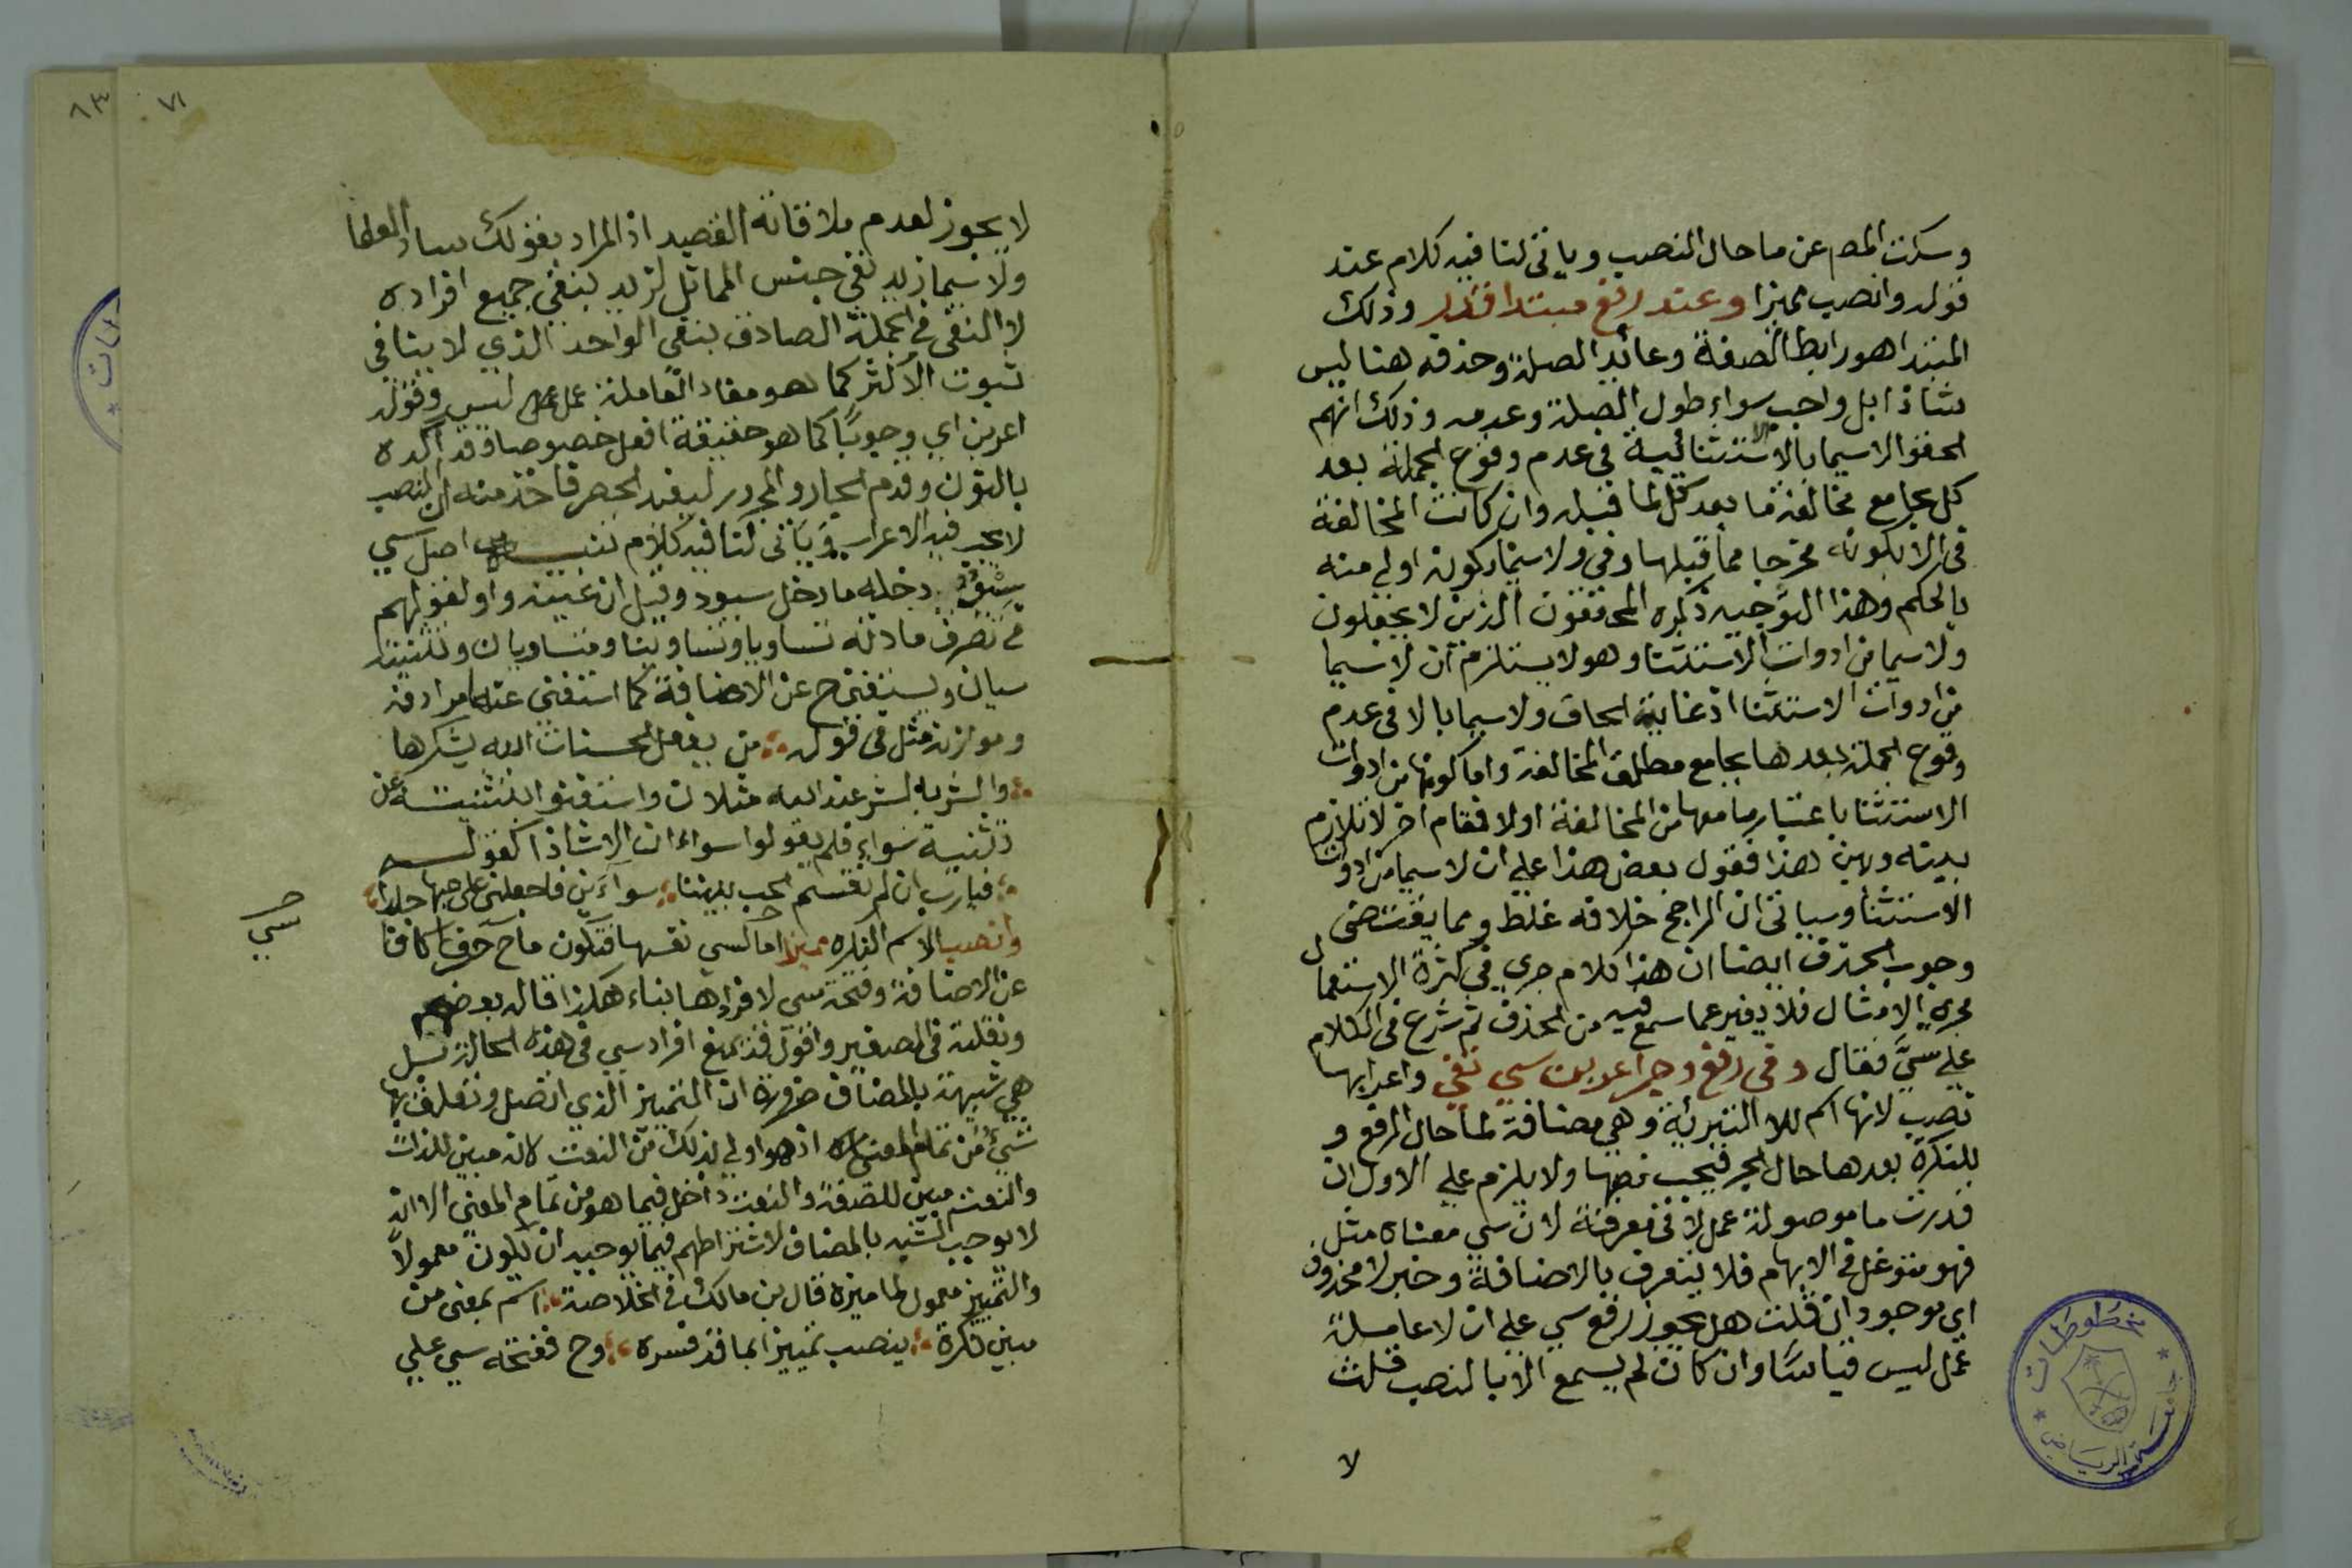 وسكت المص عن ما حال النصب وياتى لنا فيه كلام عند
قوله وانصب مميزا وعند رفع مبتدا قدر وذلك
المبتدا هو رابط الصفة وعائد الصلة وحذفه هنا ليس
شاذا بل واجب سواء طول الصلة وعدمه وذلك انهم
الحقوا لاسيما بالا الاستثنائية فى عدم وقوع الجملة بعد
كل بجامع مخالفة ما بعد كل لما قبله وان كانت المخالفة
فى الا بكونه مخرجا مما قبلها وفى ولاسيما بكونه اولى منه
بالحكم وهذا التوجيه ذكره المحققون الذين لا يجعلون
ولاسيما من ادوات الاستثنا وهو لا يستلزم ان لاسيما
من ادوات الاستثنا اذ غاية الحاق ولاسيما بالا فى عدم
وقوع الجملة بعدها بجامع مطلق المخالفة واما كونها من ادوات
الاستثنا باعتبار ما معها من المخالفة او لا فمقام اخر لا تلازم
بينه وبين هذا فقول بعض هذا على ان لاسيما من ادوات
الاستثنا وسياتى ان الراجح خلافه غلط ومما يقتضى
وجوب الحذف ايضا ان هذا كلام جرى فى كثرة الاستعمال
مجرى الامثال فلا يغير عما سمع فيه من الحذف ثم شرع فى الكلام
على سي فقال وفى رفع وجر اعربن سي نفى واعرابها
نصب لانها اسم للا التبرئة وهي مضافة لما حال الرفع و
للنكرة بعدها حال الجر فيجب نصبها ولا يلزم على الاول ان
قدرت ما موصولة عمل لا فى معرفة لان سي معناه مثل
فهو متوغل فى الابهام فلا يتعرف بالاضافة وخبر لا محذوف
اي موجود ان قلت هل يجوز رفع سي على ان لا عاملة
عمل ليس قياسا وان كان لم يسمع الا بالنصب قلت
لا
٧١
٨٣
لا يجوز لعدم ملاقاته القصد اذ المراد بقولك ساد العلما
ولاسيما زيد نفى جنس المماثل لزيد بنفى جميع افراده
لا النفى فى الجملة الصادق بنفى الواحد الذي لا ينافى
ثبوت الاكثر كما هو مفاد العاملة عمل ليس وقوله
اعربن اي وجوبا كما هو حقيقة افعل خصوصا وقد اكده
بالنون وقدم الجار والمجرور ليفيد الحصر فاخذ منه ان النصب
لا يجب فيه الاعراب وياتى لنا فيه كلام تنبيه اصل سي
سِوْيٌ دخله ما دخل سيود وقيل ان عينه واو لقولهم
فى تصرف مادته تساويا وتساوينا ومتساويان وتثنيته
سيان ويستغنى ح عن الاضافة كما استغنى عنها مرادفه
وموازنه مثل فى قوله ؞ من يفعل الحسنات الله يشكرها
؞ والشر بالشر عند الله مثلان واستغنوا بتثنيته عن
تثنية سواء فلم يقولوا سواءان الا شاذا كقوله
؞ فيارب ان لم تقسم الحب بيننا ؞ سواءين فاجعلنى على حبها جلدا ؞
وانصب الاسم النكرة مميزا اما لسي نفسها فتكون ما ح حرفا كافا
سي
عن الاضافة وفتحة سي لافرادها بناء هكذا قاله بعضهم
ونقلته فى الصغير واقول قد يمنع افراد سي فى هذه الحالة بل
هي شبيهة بالمضاف ضرورة ان التمييز الذي اتصل وتعلق بها
شيء من تمام المعنى اذ هو اولى بذلك من النعت لانه مبين للذات
والنعت مبين للصفة والنعت داخل فيما هو من تمام المعنى الا انه
لا يوجب الشبه بالمضاف لاشتراطهم فيما يوجبه ان يكون معمولا
والتمييز معمول لما ميزه قال بن مالك فى الخلاصة ؞ اسم بمعنى من
مبين نكرة ؞ ينصب تمييزا بما قد فسره ؞ وح ففتحه سي على
مخطوطات
جامعة الرياض